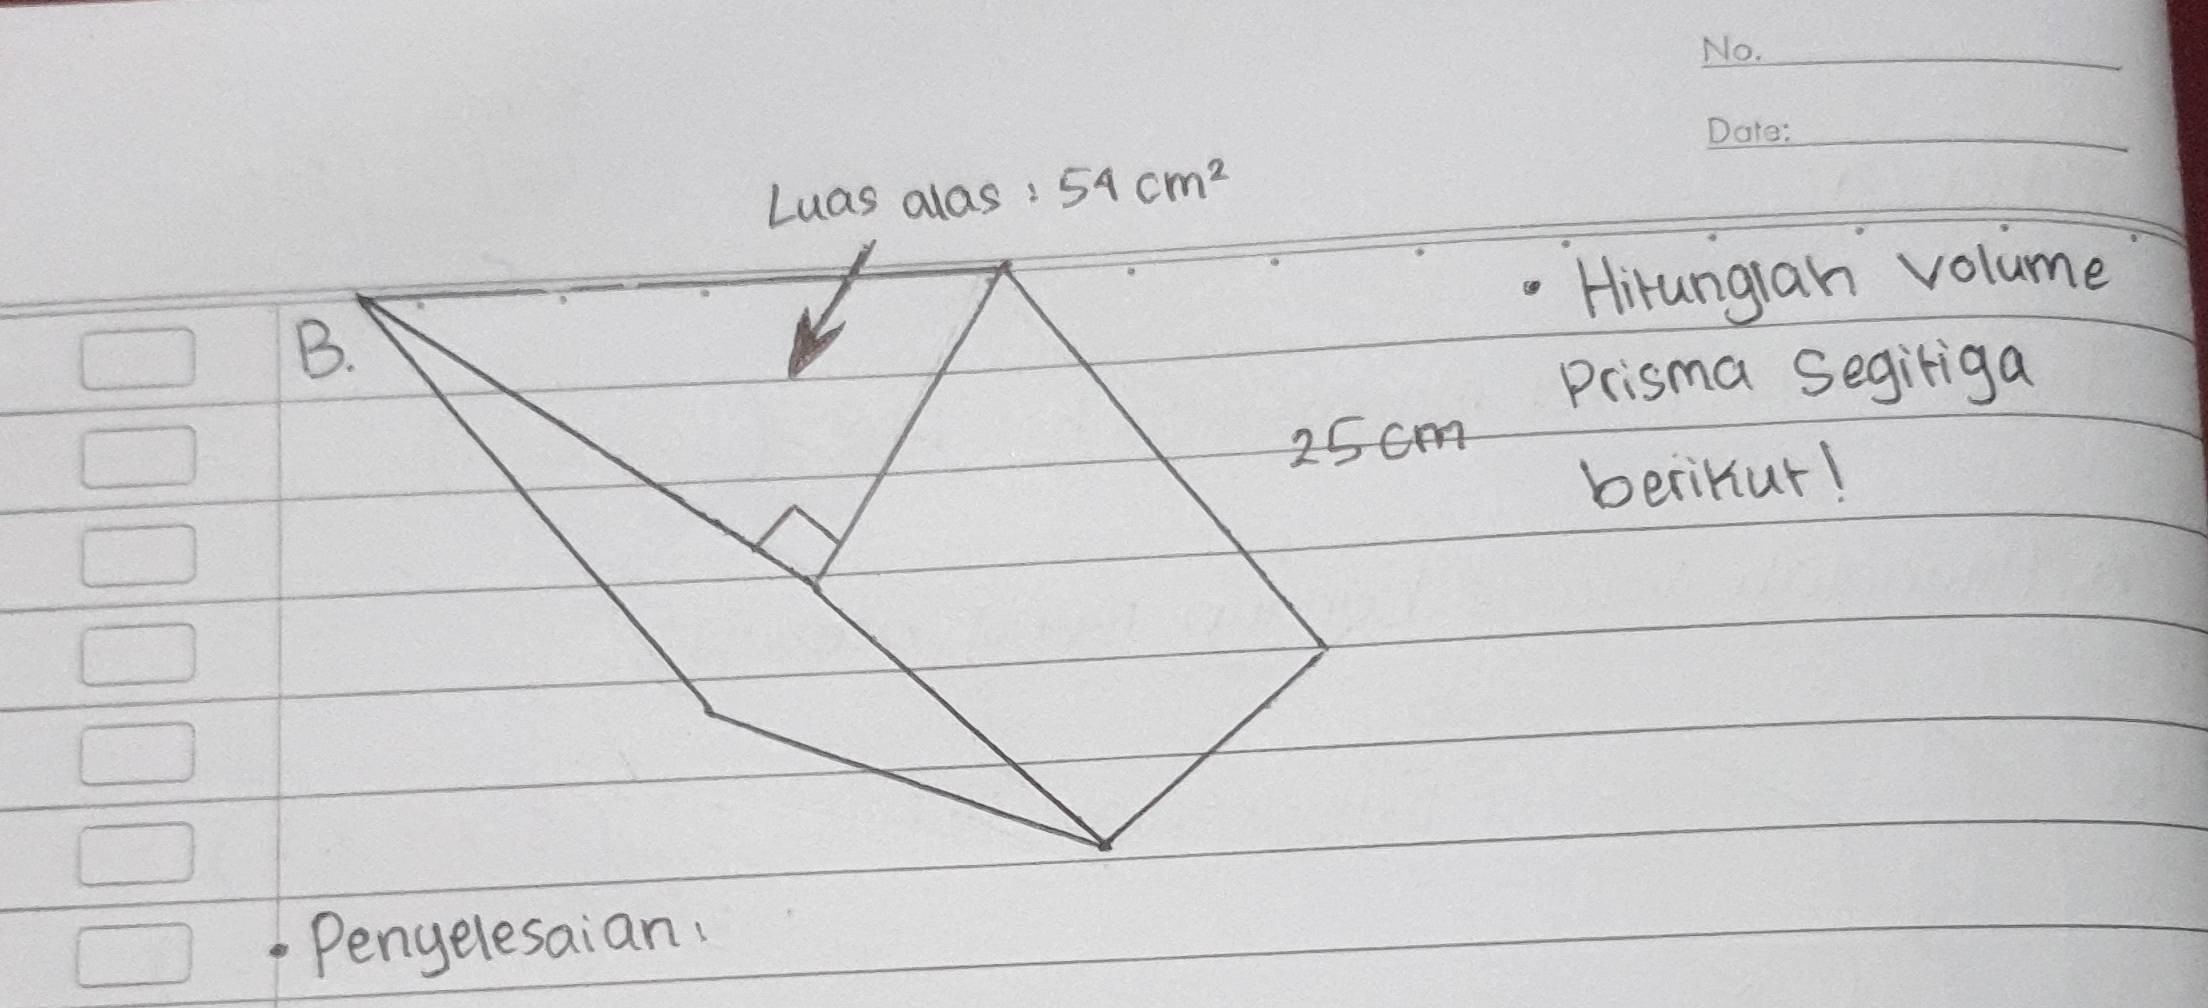 No.
Date:
Luas alas : 54 cm²
• Hitunglah volume
Prisma Segitiga
berikut!
B.
25 cm
• Penyelesaian: